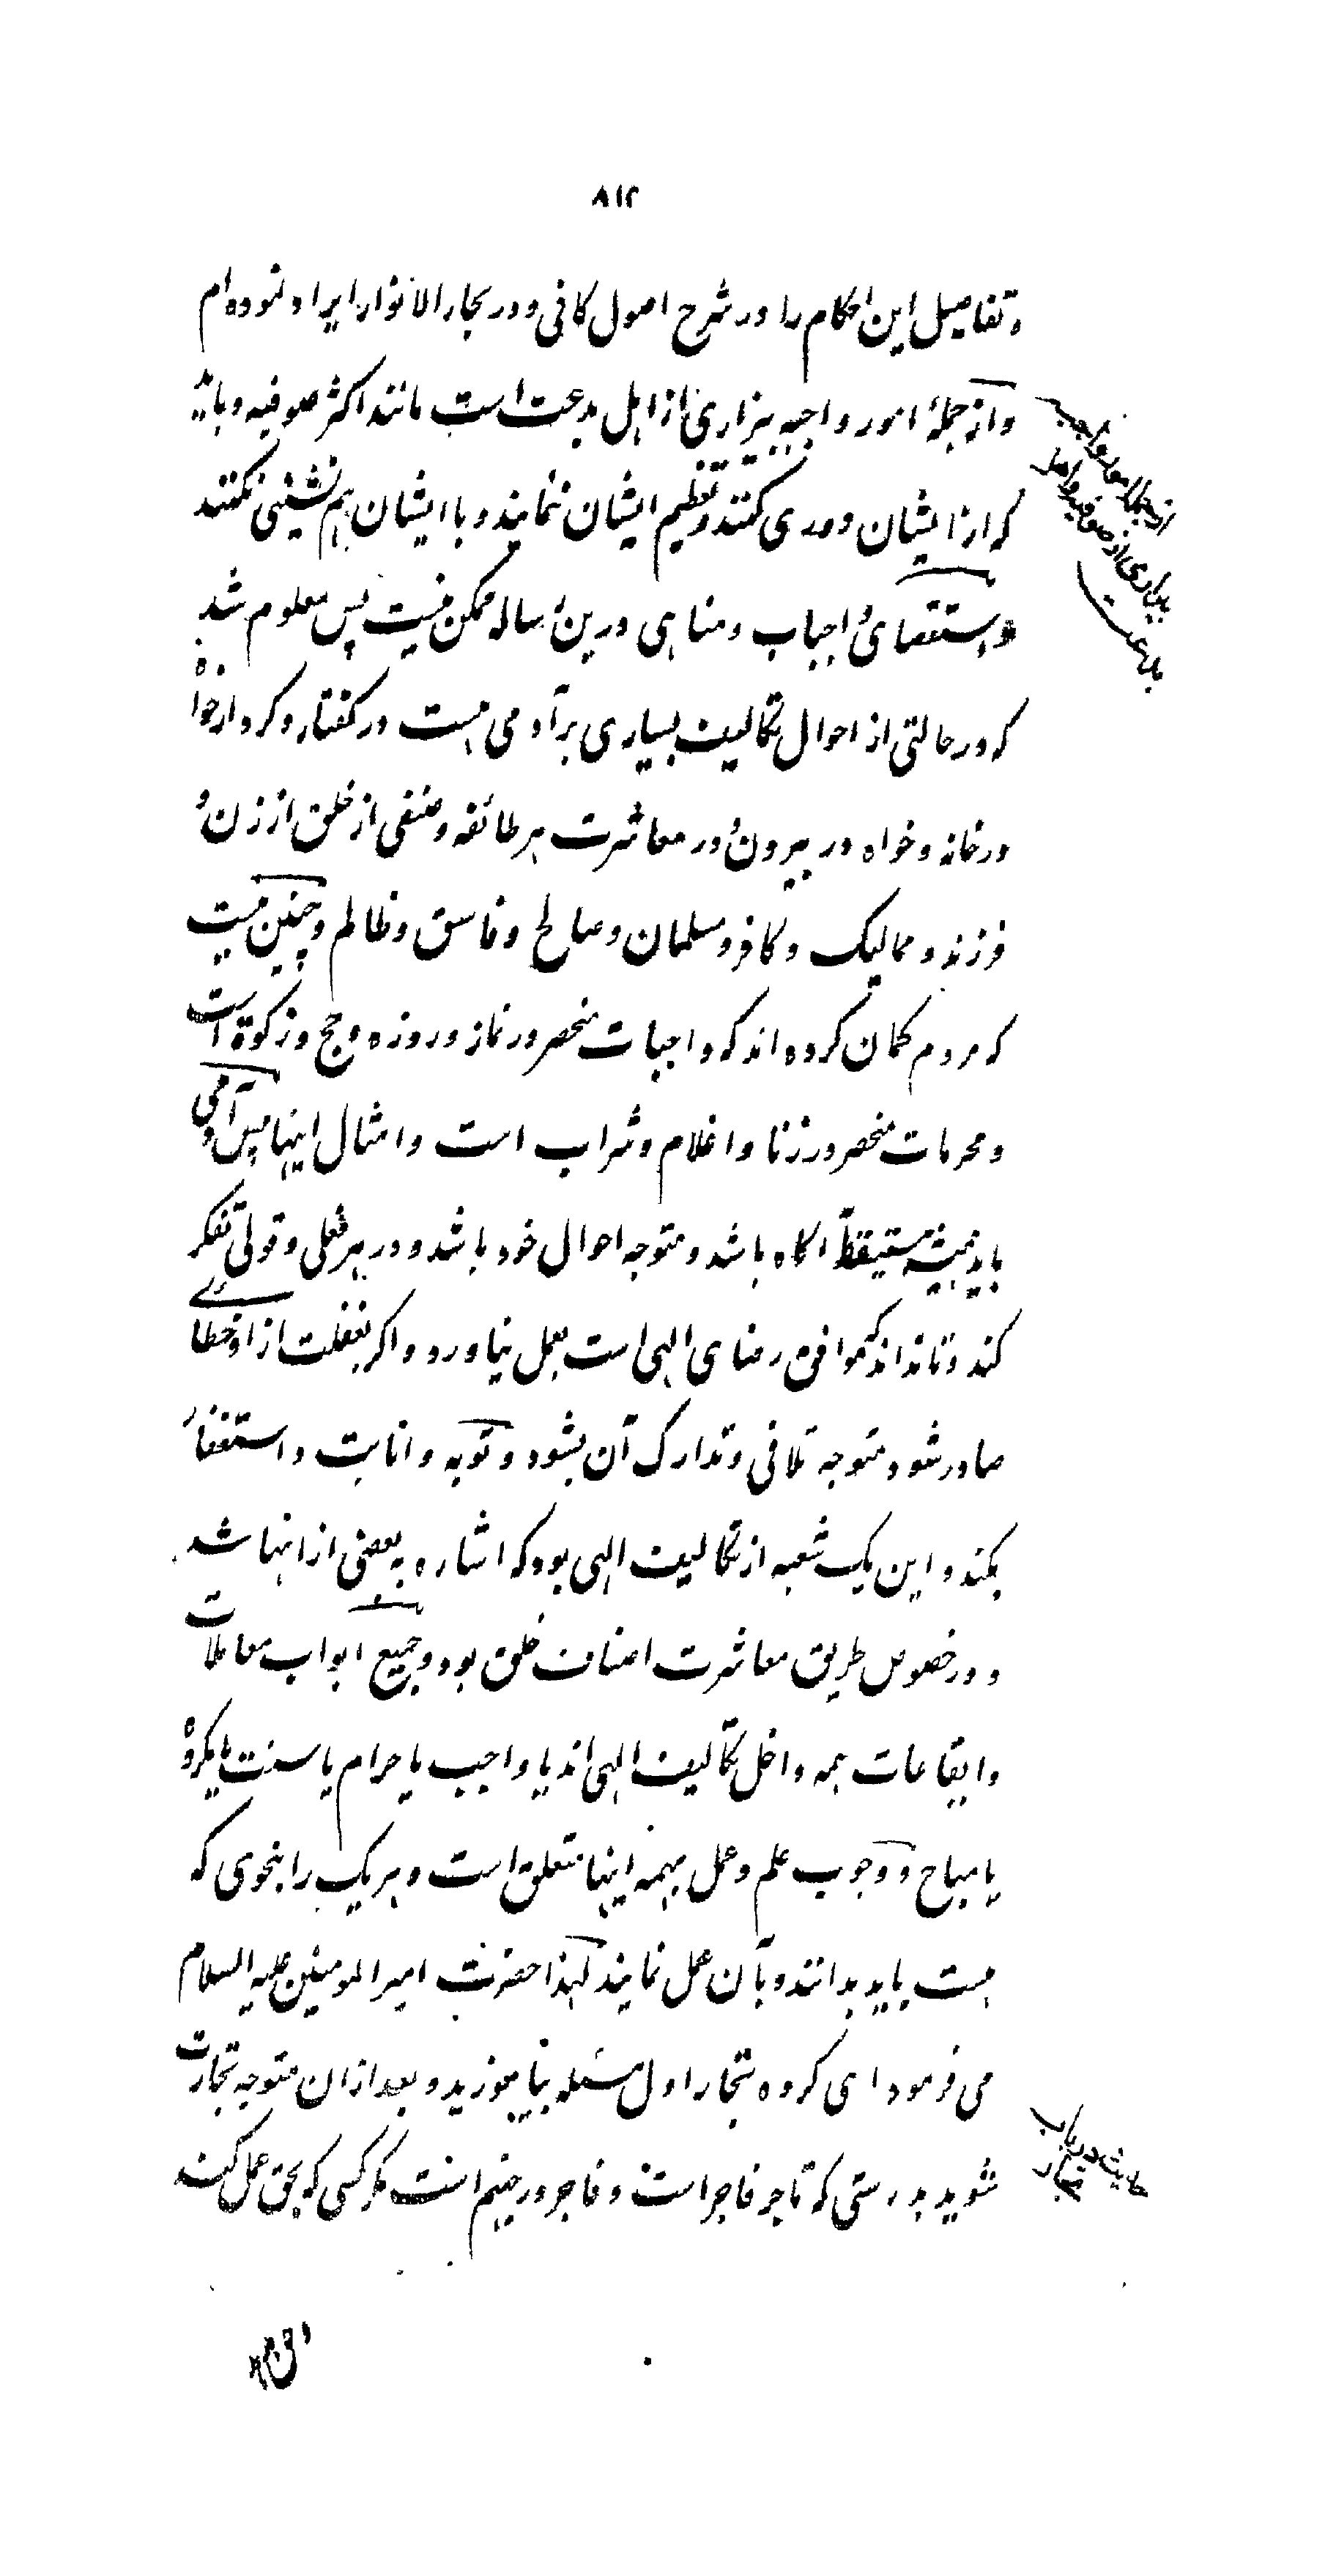 ۸۱۲
و تفاصیل این احکام را در شرح اصول کافی و در بحار الانوار ایراد نموده‌ام
و از جملهٔ امور واجبه بیزاری از اهل بدعت است مانند اکثر صوفیه و باید
که از ایشان دوری کنند و تعظیم ایشان ننمایند و با ایشان هم نشینی نکنند
و استقصای واجبات و مناهی درین رساله ممکن نیست پس معلوم شد
که در حالتی از احوال تکالیف بسیاری بر آدمی هست در گفتار و کردار خواه
در خانه و خواه در بیرون و در معاشرت هر طائفه و صنفی از خلق از زن و
فرزند و ممالیک و کافر و مسلمان و صالح و فاسق و ظالم و چنین نیست
که مردم گمان کرده‌اند که واجبات منحصر در نماز و روزه و حج و زکوة است
و محرمات منحصر در زنا و اغلام و شراب است و امثال اینها پس آدمی
باید همیشه متیقظ و آگاه باشد و متوجه احوال خود باشد و در هر فعلی و قولی تفکر
کند و تا نداند که موافق رضای الهی است بعمل نیاورد و اگر بغفلت از او خطائے
صادر شود متوجه تلافی و تدارک آن بشود و توبه و انابت و استغفار
بکند و این یک شعبه از تکالیف الهی بود که اشاره به بعضی از انها شد
و در خصوص طریق معاشرت اصناف خلق بود و جمیع ابواب معاملات
و ایقاعات همه داخل تکالیف الهی‌اند یا واجب یا حرام یا سنت یا مکروه
یا مباح و وجوب علم و عمل بهمه اینها متعلق است و هر یک را بنحوی که
هست باید بدانند و بآن عمل نمایند لهذا حضرت امیر المومنین علیه السلام
می فرمود ای گروه تجار اول مسئله بیاموزید و بعد ازان متوجه تجارت
شوید بدرستی که تاجر فاجر است و فاجر در جهنم است مگر کسی که بحق عمل کند
از جملهٔ امور واجبه
بیزاری از صوفیه و اهل
بدعت
حدیث در باب
تجار